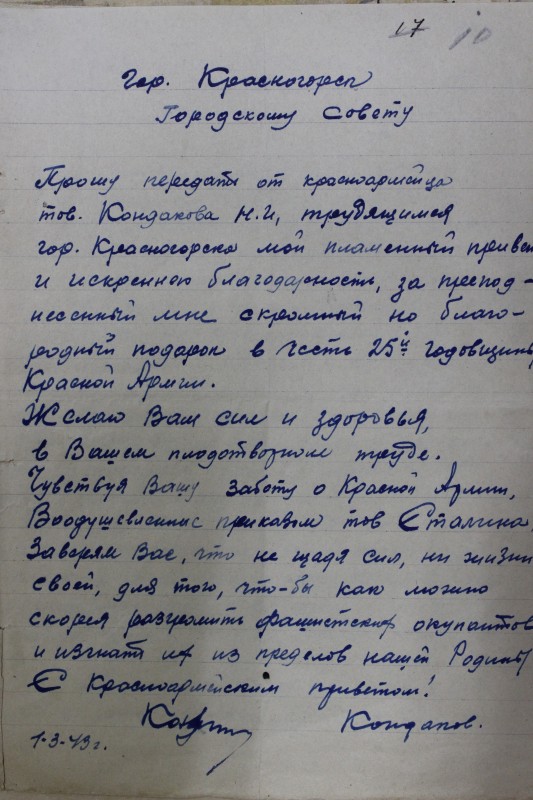 17 10
гор. Красногорск
Городскому Совету
Прошу передать от красноармейца
тов. Кондакова Н.И, трудящимся
гор. Красногорска мой пламенный привет
и искреннюю благодарность, за препод-
несенный мне скромный но благо-
родный подарок в честь 25й годовщины
Красной Армии.
Желаю Вам сил и здоровья,
в Вашем плодотворном труде.
Чувствуя Вашу заботу о Красной Армии,
Воодушевленные приказом тов Сталина,
Заверяем Вас, что не щадя сил, ни жизни
своей, для того, что-бы как можно
скорея разгромить фашистских окупантов
и изгнать их из пределов нашей Родины
С Красноармейским приветом!
Кондаков.
1-3-43г.